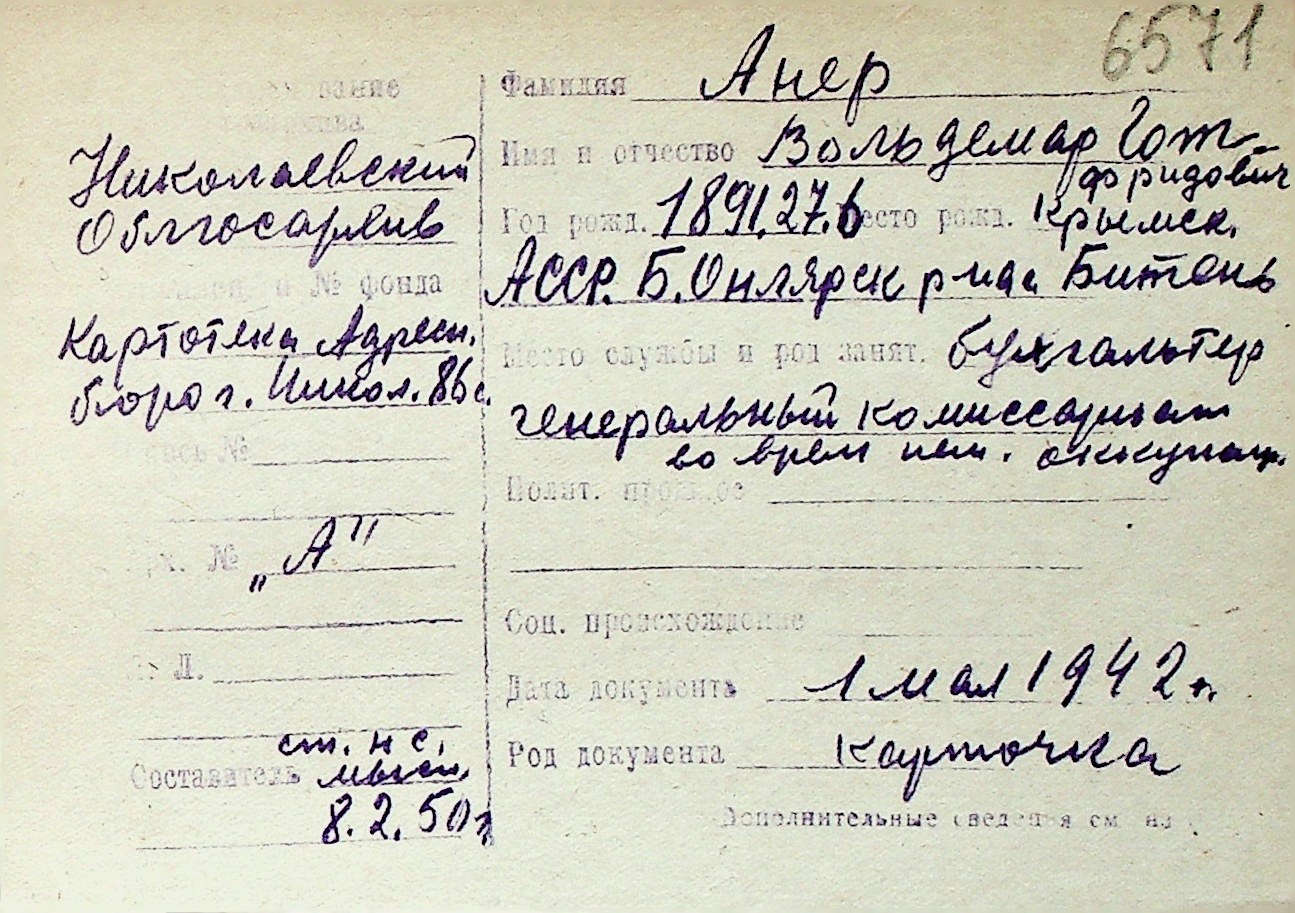 6571
вание
Николаевский
Облгосархив
№ фонда
Картотека Адресн.
бюро г. Никол. 86 с.
№
№ „А"
Л.
ст. н с.
Составитель
8.2.50г
Фамилия Анер
Имя и отчество Вольдемар Гот-
фридович
Год рожд. 1891.27.6 Место рожд. Крымск.
АССР. Б. Онлярск р-на Битень
Место службы и род занят. бухгалтер
генеральный комиссариат
во врем нем. оккупац.
Полит. прошлое
Соц. происхождение
Дата документа 1 мая 1942 г.
Род документа карточка
Дополнительные сведенья см на